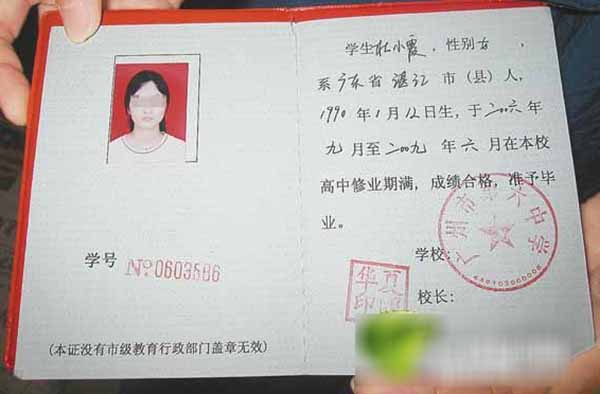 学号 Nº0603586
(本证没有市级教育行政部门盖章无效)
学生杜小霞，性别女，
系广东省湛江市（县）人，
1990年1月12日生，于二00六年
九月至二00九年六月在本校
高中修业期满，成绩合格，准予毕
业。
学校：
广州市第六中学
校长：
华夏
印